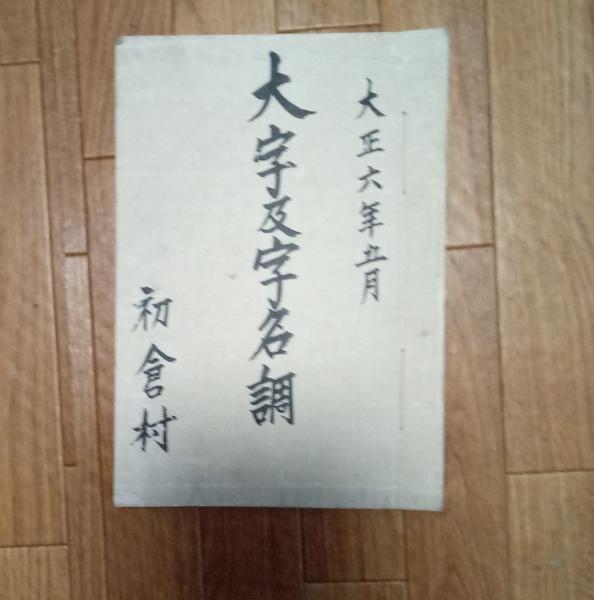 大正六年五月
大字及字名調
初倉村